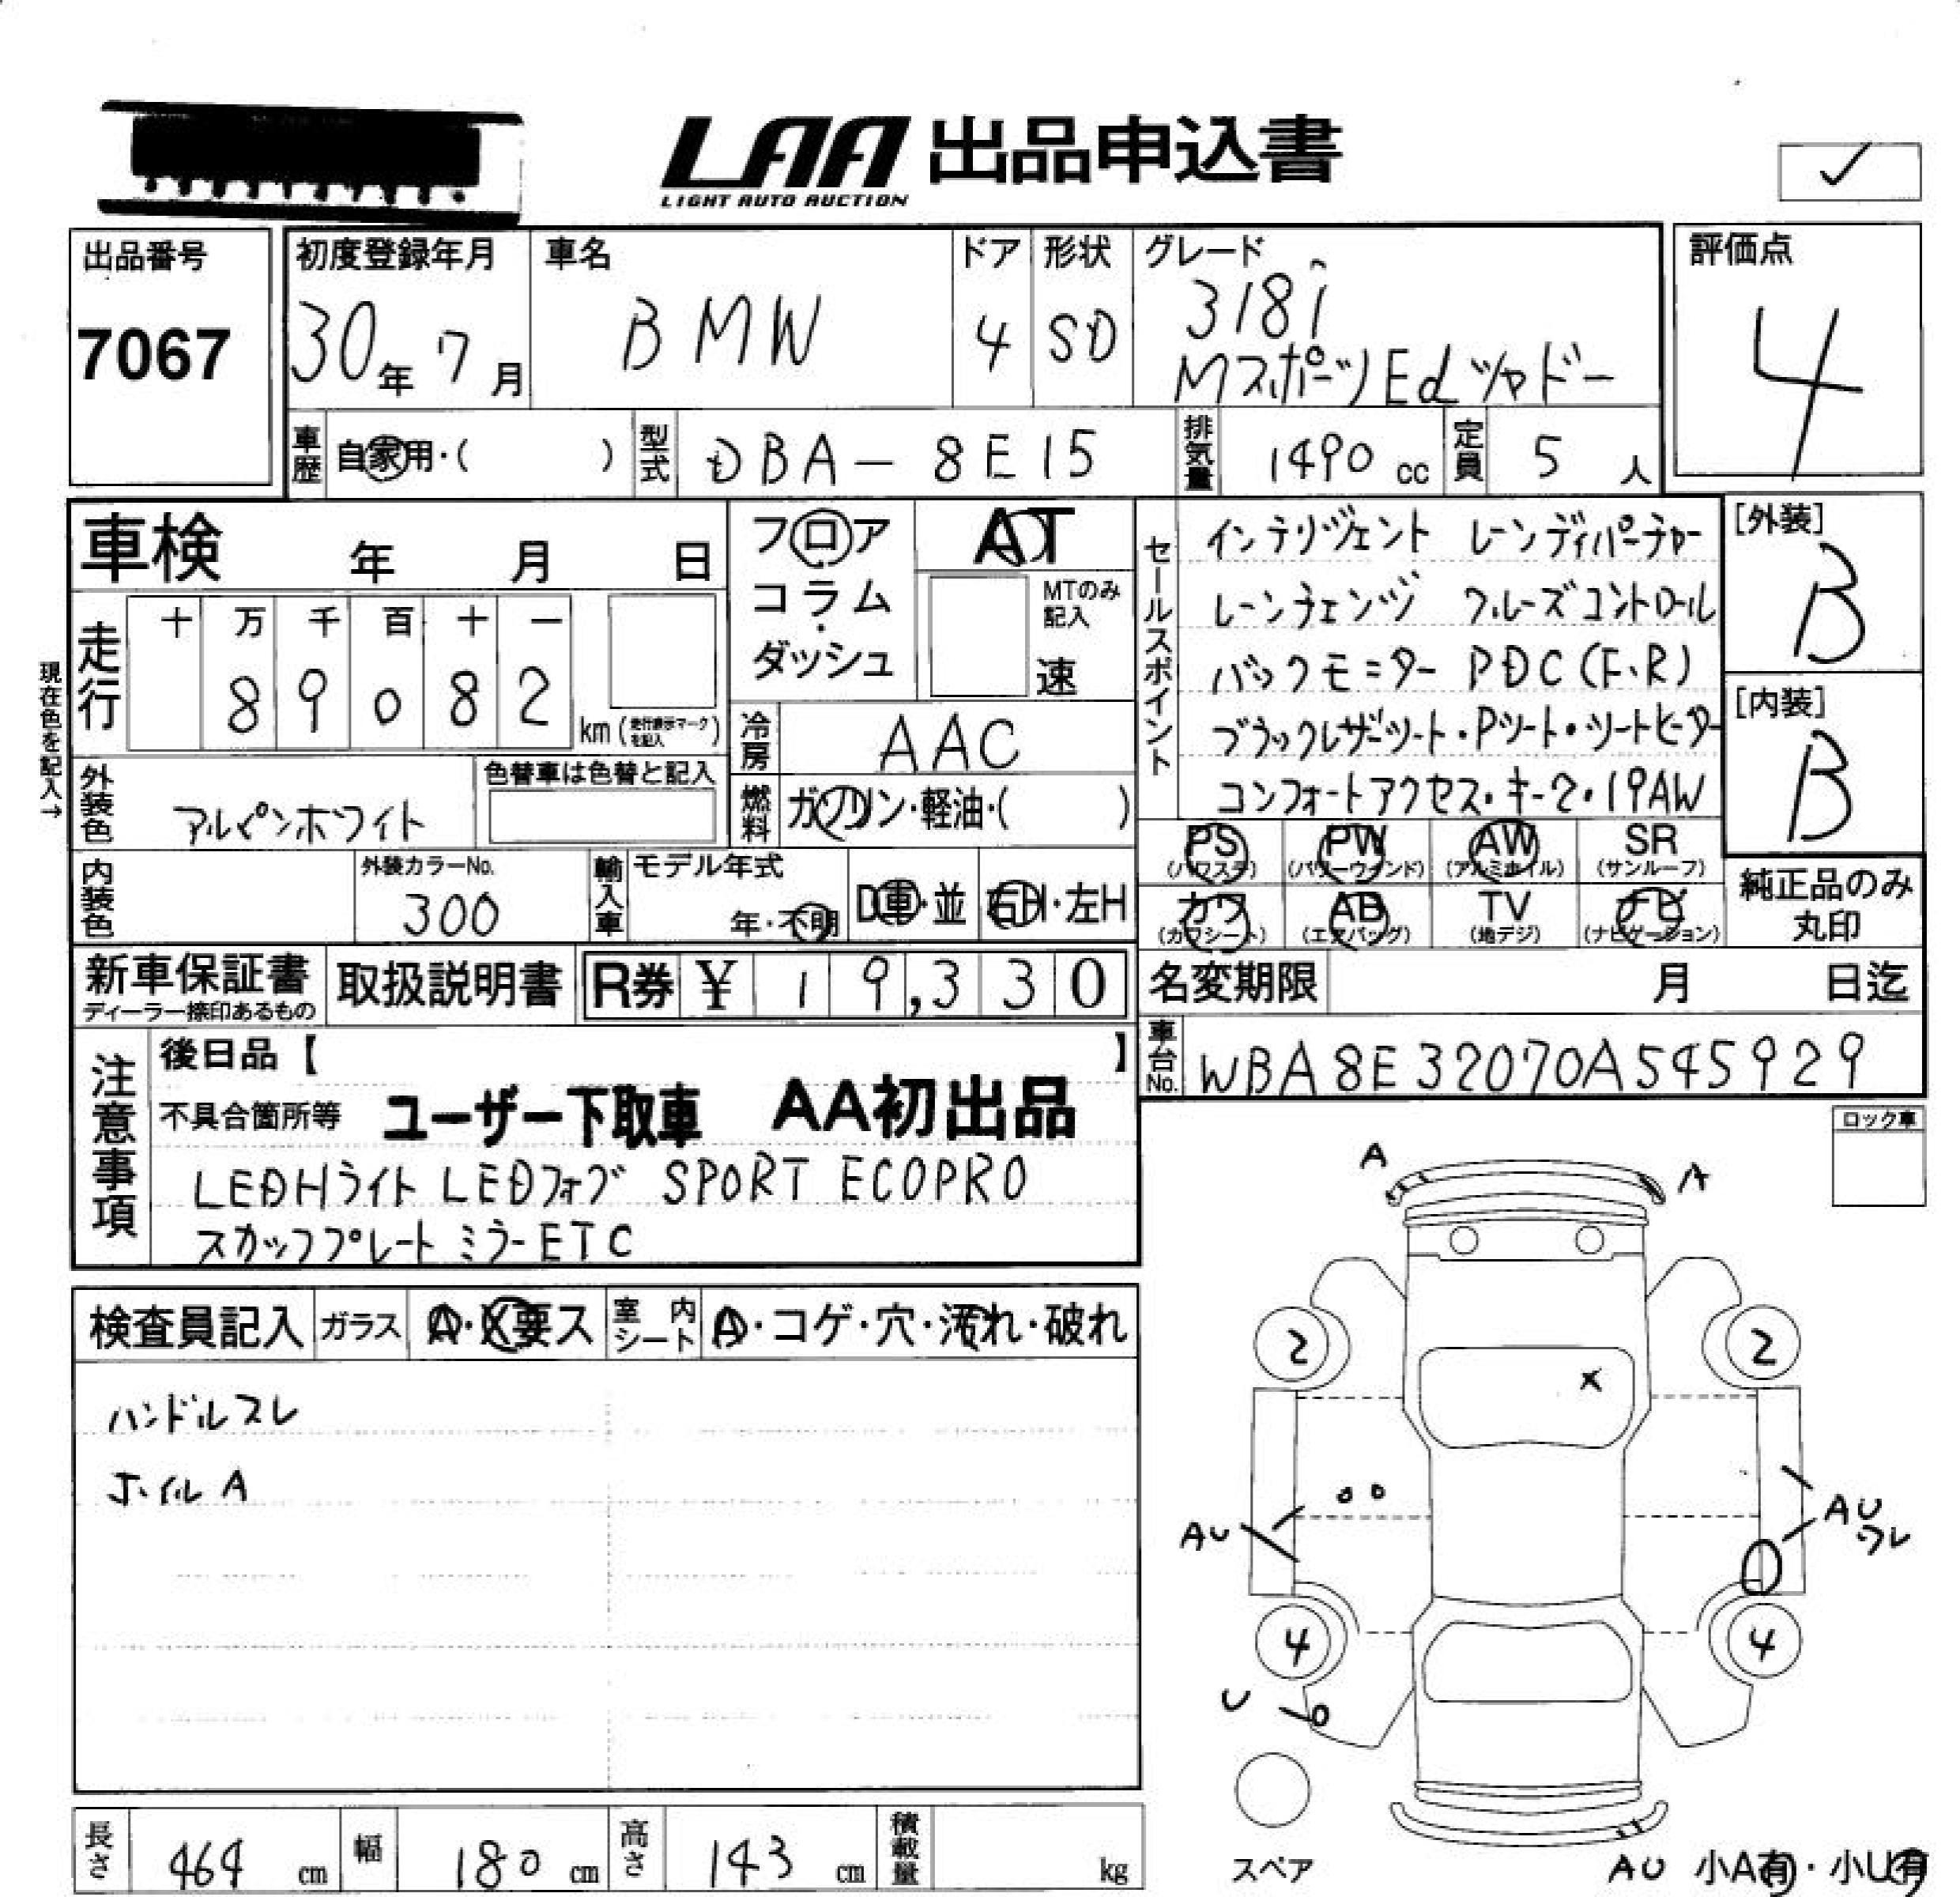 LAA 出品申込書
LIGHT AUTO AUCTION
✓
出品番号
7067
初度登録年月
30年 7月
車名
BMW
ドア
4
形状
SD
グレード
318i
MスポーツEdシャドー
評価点
4
車歴 自家用・( )
型式 DBA-8E15
排気量 1490 cc
定員 5 人
車検 年 月 日
フロア
コラム
・
ダッシュ
AT
MTのみ
記入
速
セールスポイント
インテリジェント レーンディパーチャー
レーンチェンジ クルーズコントロール
バックモニター PDC(F、R)
ブラックレザーシート・Pシート・シートヒーター
コンフォートアクセス・キー2・19AW
[外装]
B
[内装]
B
現在色を記入→
走行
十 万 千 百 十 一
8 9 0 8 2
km (走行表示マークを記入)
冷房 AAC
燃料 ガソリン・軽油・( )
外装色 アルピンホワイト
色替車は色替と記入
内装色
外装カラーNo.
300
輸入車
モデル年式
年・不明
D車・並
右H・左H
PS
(パワステ)
PW
(パワーウインド)
AW
(アルミホイル)
SR
(サンルーフ)
カワ
(カワシート)
AB
(エアバッグ)
TV
(地デジ)
ナビ
(ナビゲーション)
純正品のみ
丸印
新車保証書
ディーラー捺印あるもの
取扱説明書
R券 ¥ 19,330
名変期限 月 日迄
車台No. WBA8E32070A545929
注意事項
後日品【 】
不具合箇所等 ユーザー下取車 AA初出品
LEDHライト LEDフォグ SPORT ECOPRO
スカッフプレート ミラーETC
ロック車
検査員記入
ガラス A・X要ス
室内シート A・コゲ・穴・汚れ・破れ
ハンドルスレ
ホイルA
A
A
2
2
X
AU
AU
ワレ
4
4
U
スペア
AU 小A有・小U有
長さ 464 cm
幅 180 cm
高さ 143 cm
積載量 kg